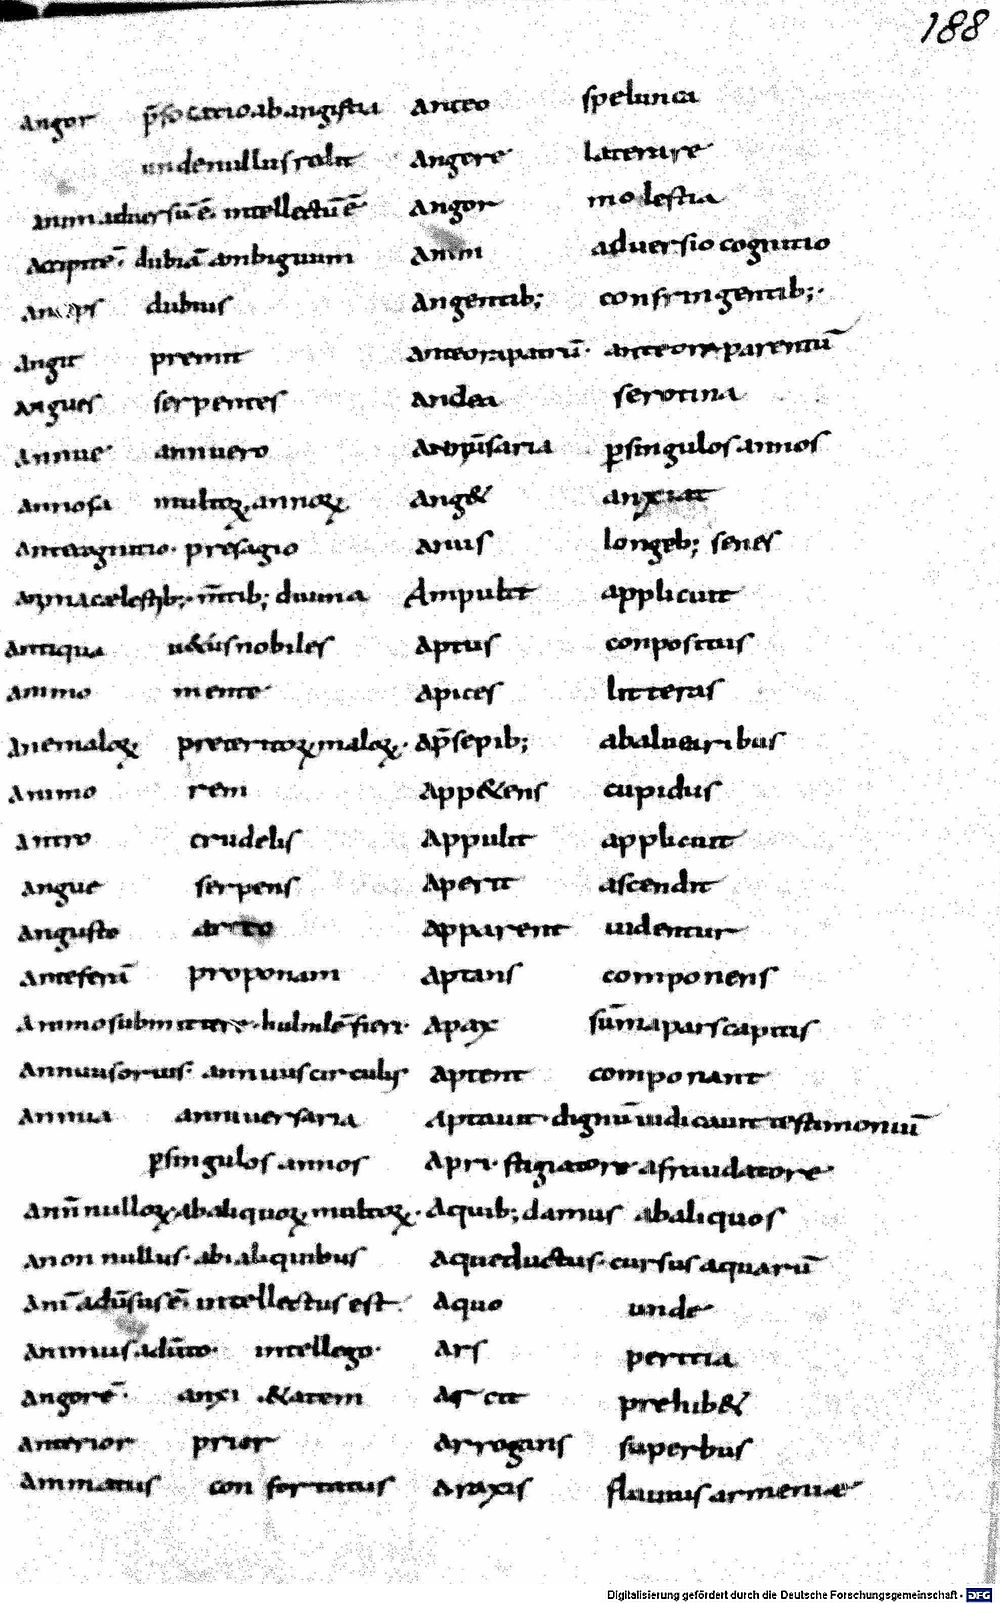 188
Angor p̄focatio ab angustia
unde nullus volit
Animaduersū ē. intellectū ē
Ancipitē. dubiā ambiguum
Anceps dubius
Angit premit
Angues serpentes
Annue annuero
Annosa multoꝝ annoꝝ
Antecognitio. presagio
cælestib; m̄tib; diuina
Antiqua nobiles
Animo mente
Anemaloꝝ preteritoꝝ maloꝝ.
Animo rem
Antro crudelis
Angue serpens
Angusto arto
Anteferā proponam
Animo submittere. humilē fieri.
Annuus orbis. annuus circulus
Annua anniuersaria
ꝑ singulos annos
Ann̄ nulloꝝ. ab aliquoꝝ. multoꝝ.
A non nullus. ab aliquibus
Anī adū̄sus ē. intellectus est.
Animus aduto. intellego.
Angorē. anxi &atem
Anterior prior
Animatus con fortatus
Antro spelunca
Angere laterare
Angor molestia
Anim aduersio cognitio
Angentib; confringentib;.
Ante ora patrū. ante ora parentū
Andea serotina
Anniū̄saria ꝑ singulos annos
Ang& anxiat
Anus longeb; senes
Ampulit applicuit
Aptus conpositus
Apices litteras
Ap̄sepib; ab aluearibus
App&ens cupidus
Appulit applicuit
Aperit ascendit
Apparent uidentur
Aptans componens
Apax sūma pars capitis
Aptent componant
Aptauit. dignū iudicauit testimoniū
Apri. stigiatore a fraudatore
A quib; damus ab aliquos
Aqueductus. cursus aquarū
A quo unde
Ars peritia
Arcit prehib&
Arrogans superbus
Araxis fluuius armeniæ
Digitalisierung gefördert durch die Deutsche Forschungsgemeinschaft - DFG